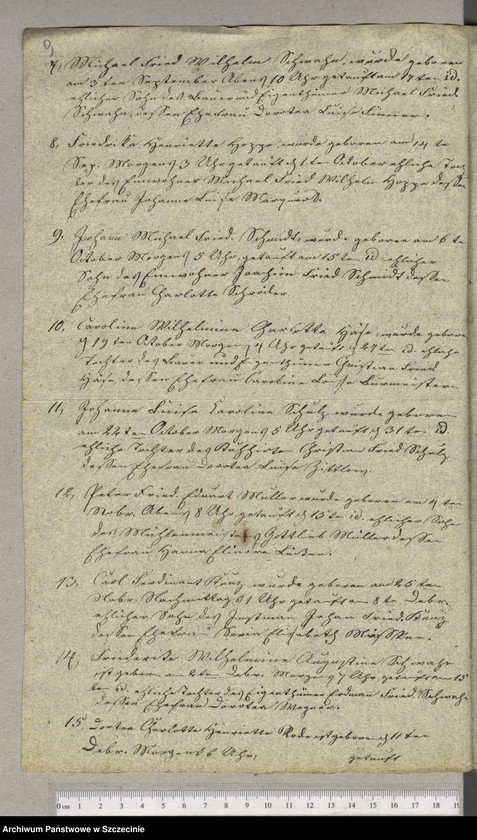 9
7, Michael Fried Wilhelm Schwahn, wurde geboren
am 3ten September Abens 10 Uhr getauft am 17ten id.
ehlicher Sohn des Bauer und Eigenthümer Michael Fried.
Schwahn, dessen Ehefrau Dorotea Luise
8, Friedrika Henriette Hoppe, wurde geboren am 14te
Sep. Morgens 3 Uhr getauft d 1ten October ehliche Toch
ter des Einwohner Michael Fried Wilhelm Hoppe dessen
Ehefrau Johanne Luise
9, Johann Michael Fried. Schmidt, wurde geboren am 6te
October Morgens 5 Uhr, getauft am 15ten id. ehlicher
Sohn des Einwohner Joachim Fried Schmidt dessen
Ehefrau Charlotte Schröder
10, Caroline Wilhelmine Charlotte Häse, wurde gebore
d 19ten October Morgens 4 Uhr getauft d 27ten id. ehliche
Tochter des Bauer und Eigenthümer Christian Fried
Häse, dessen Ehefrau Caroline Luise Burmeistern
11, Johanne Luise Karoline Schulz wurde geboren
am 22ten October Morgens 5 Uhr getauft d 31ten id.
ehliche Tochter des Kuhhirte Christian Fried Schulz
dessen Ehefrau Dorotea Luise Zittlow.
12, Peter Fried. Eduart Müller wurde geboren am 4ten
Nobr. Abens 8 Uhr getauft d 15ten id. ehlicher Sohn
des Mühlenmeisters Gottlieb Müller dessen
Ehefrau Hanna Elinore
13, Carl Ferdinant Kunz wurde geboren am 25ten
Nobr. Nachmittags 1 Uhr getauft am 8ten Debr.
ehlicher Sohn des Instman Johan Fried. Kunz
dessen Ehefrau Elisabeth
14, Friederike Wilhelmine Augustine Schwahn
ist geboren am 2ten Debr. Morgens 7 Uhr, getauft am 15
ten id. ehliche Tochter des Eigenthümer Erdman Fried. Schwahn
dessen Ehefrau Dorotea Wegner.
15 Dorotea Charlotte Henriette Rode ist geboren d 11ten
Debr. Morgens 6 Uhr,
getauft
0 cm 1 2 3 4 5 6 7 8 9 10 11 12 13 14 15 16 17 18 19
Archiwum Państwowe w Szczecinie